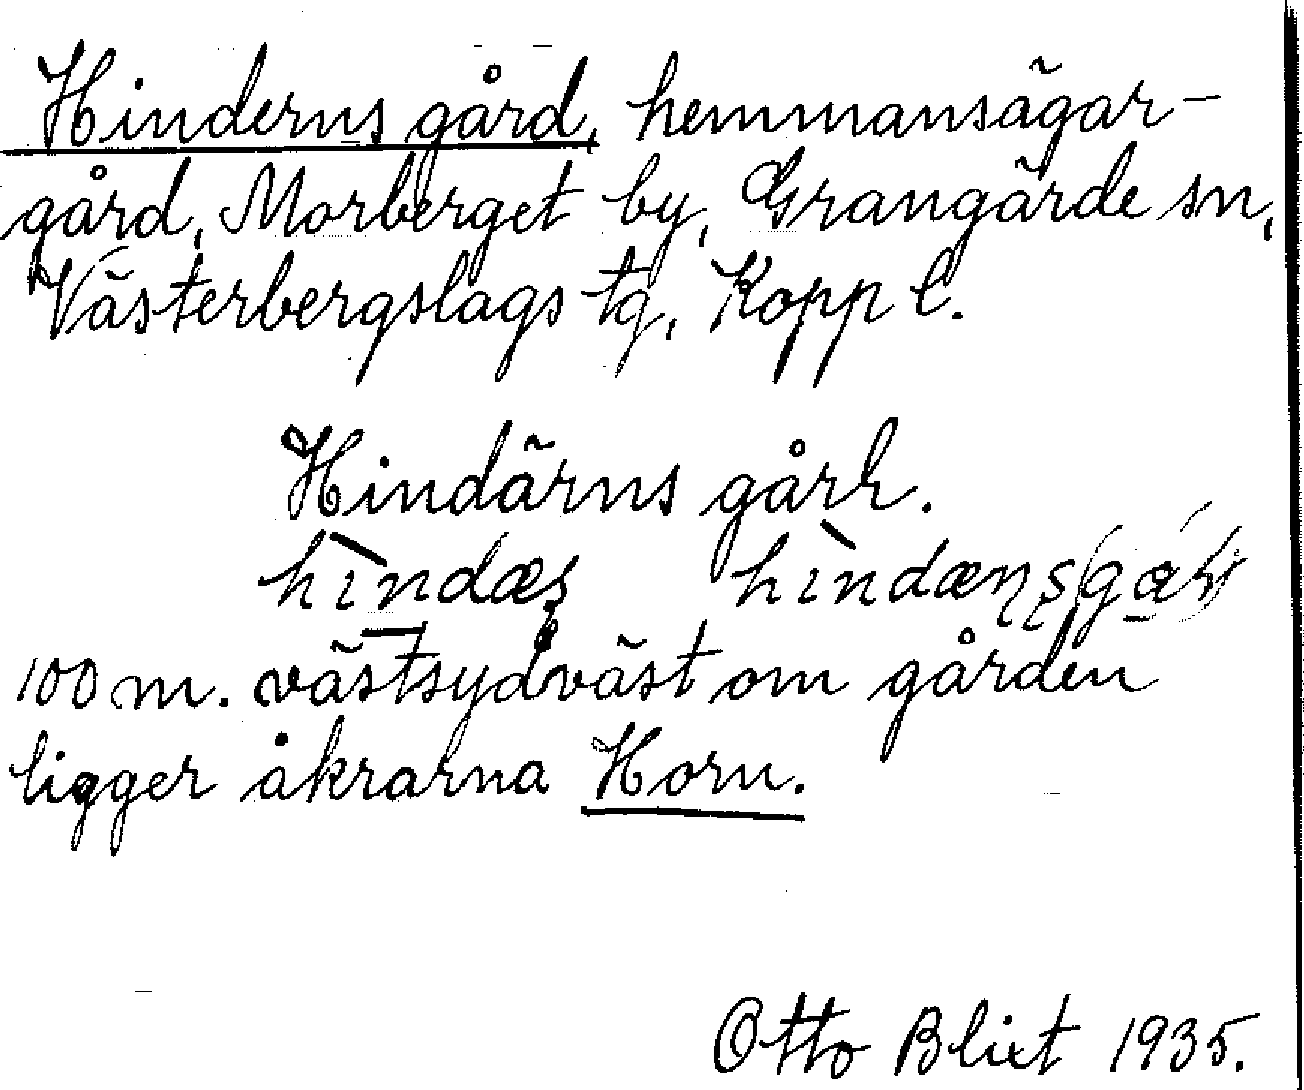 Hinderns gård, hemmansägar-
gård, Morberget by, Grangärde sn,
Västerbergslags tg, Kopp l.
Hindärns gårh.
100 m. västsydväst om gården
ligger åkrarna Horn.
Otto Blixt 1935.